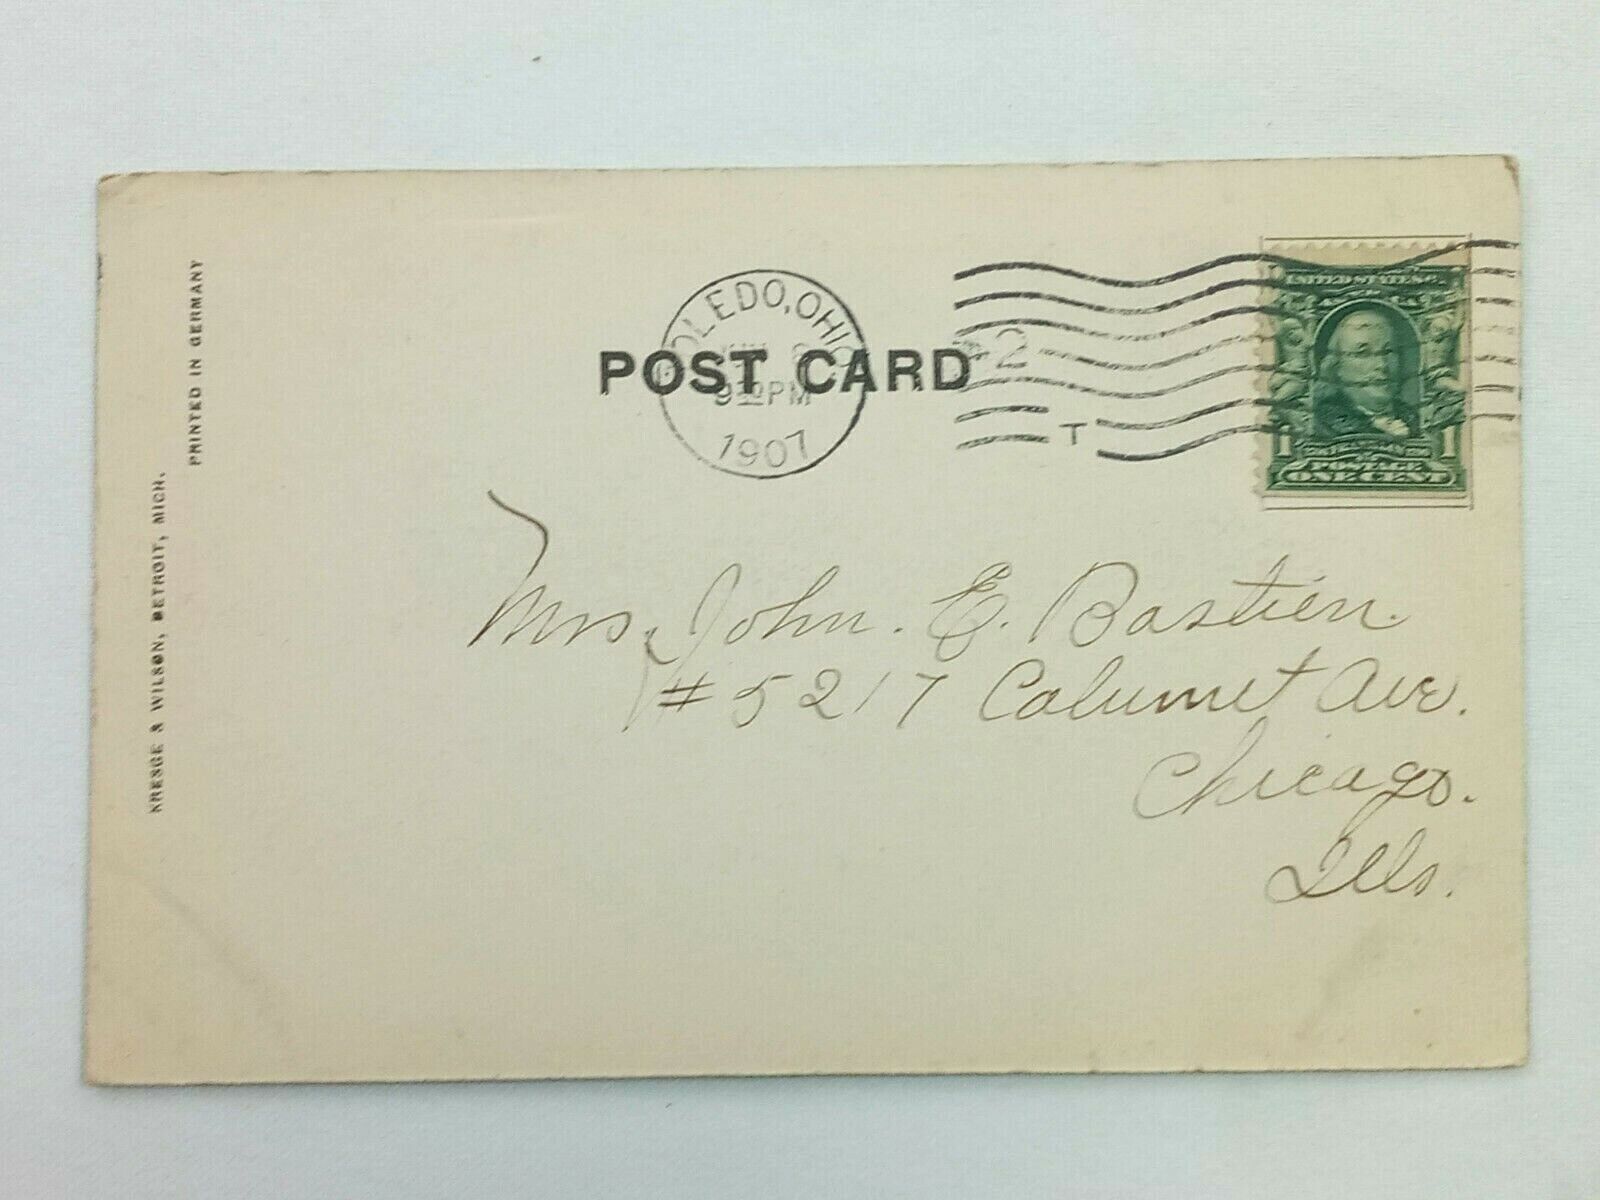 PRINTED IN GERMANY
KRESGE & WILSON, DETROIT, MICH.
TOLEDO, OHIO
9 30 PM
1907
POST CARD
2
T
UNITED STATES
1 1
POSTAGE
ONE CENT
Mrs. John. E. Bastien.
# 5217 Calumet Ave.
Chicago.
Ills.